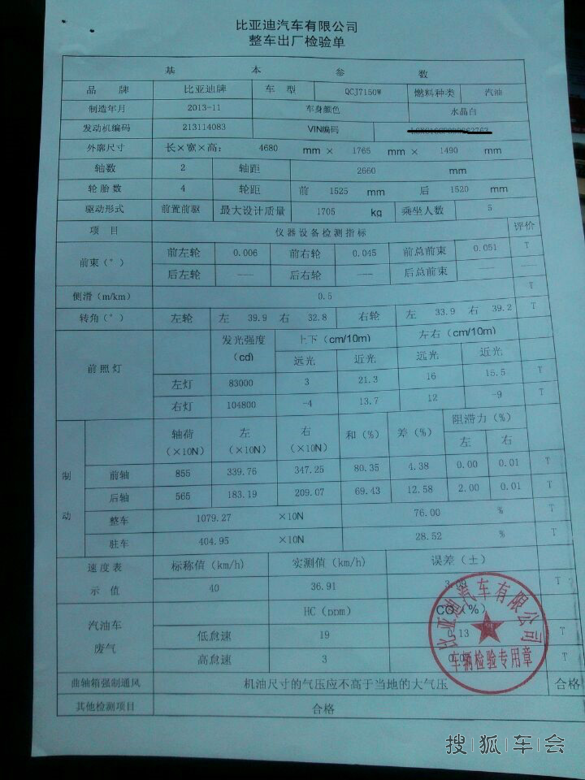 比亚迪汽车有限公司
整车出厂检验单
基 本 参 数
品 牌 比亚迪牌 车 型 QCJ7150W 燃料种类 汽油
制造年月 2013-11 车身颜色 水晶白
发动机编码 213114083 VIN编码
外廓尺寸 长×宽×高: 4680 mm × 1765 mm × 1490 mm
轴数 2 轴距 2660 mm
轮胎数 4 轮距 前 1525 mm 后 1520 mm
驱动形式 前置前驱 最大设计质量 1705 kg 乘坐人数 5
项 目 仪器设备检测指标 评价
前束(°) 前左轮 0.006 前右轮 0.045 前总前束 0.051 T
后左轮 —— 后右轮 —— 后总前束 ——
侧滑(m/km) 0.5 T
转角(°) 左轮 左 39.9 右 32.8 右轮 左 33.9 右 39.2 T
前照灯 发光强度(cd) 上下(cm/10m) 左右(cm/10m)
远光 近光 远光 近光
左灯 83000 3 21.3 16 15.5 T
右灯 104800 -4 13.7 12 -9 T
制动 轴荷(×10N) 左(×10N) 右(×10N) 和(%) 差(%) 阻滞力(%)
左 右
前轴 855 339.76 347.25 80.35 4.38 0.00 0.01 T
后轴 565 183.19 209.07 69.43 12.58 2.00 0.01 T
整车 1079.27 ×10N 76.00 % T
驻车 404.95 ×10N 28.52 % T
速度表 标称值(km/h) 实测值(km/h) 误差(±)
示值 40 36.91 T
汽油车废气 HC(ppm) CO(%)
低怠速 19 0.13 T
高怠速 3 T
曲轴箱强制通风 机油尺寸的气压应不高于当地的大气压 合格
其他检测项目 合格
比亚迪汽车有限公司
车辆检验专用章
搜狐车会